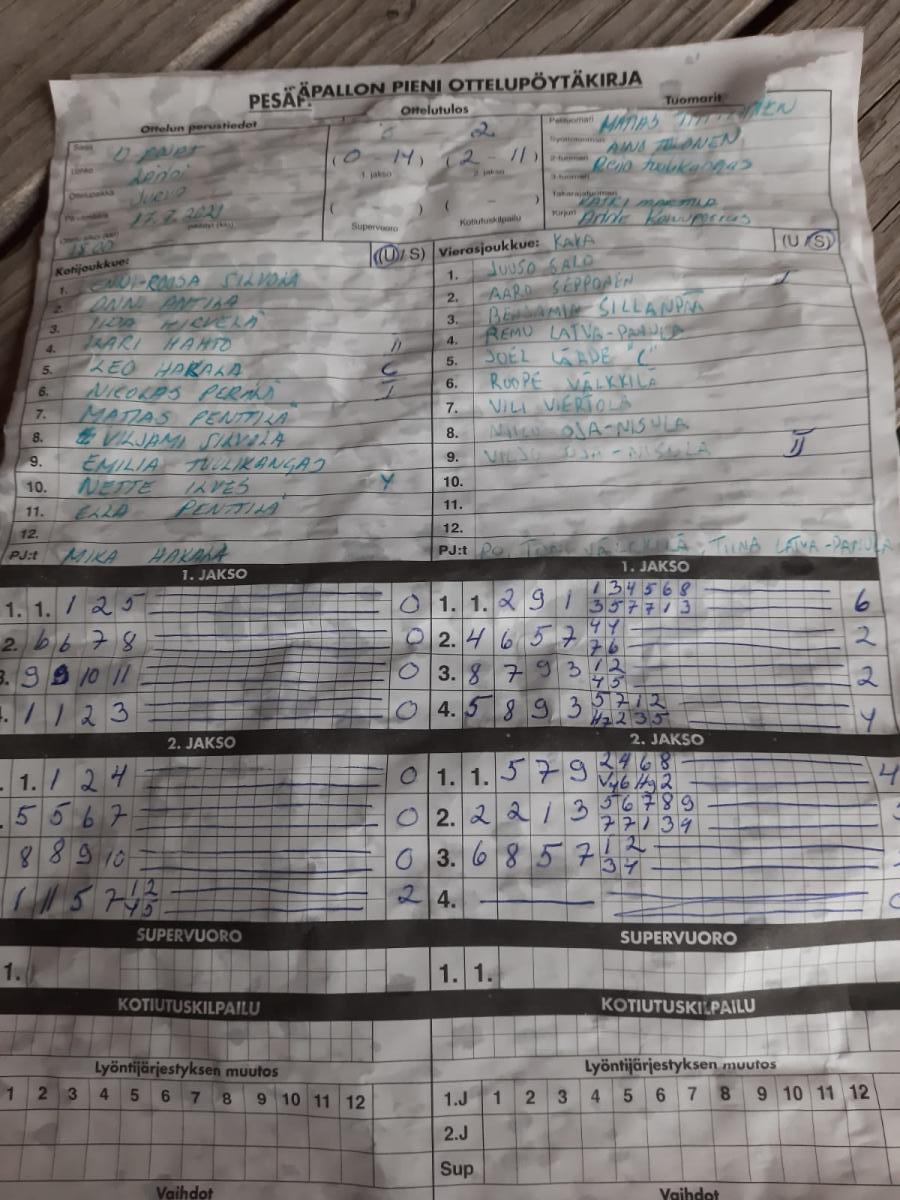 PESÄPALLON PIENI OTTELUPÖYTÄKIRJA
Ottelun perustiedot Ottelutulos Tuomarit
Sarja
Lohko
Ottelupaikka
Päivämäärä 17.7.2021
18.00
0 2
(0 - 14) (2 - 11)
1. jakso 2. jakso
( - ) ( - )
Supervuoro Kotiutuskilpailu
Pelituomari MATIAS
AINO
2-tuomari Reijo
3-tuomari
Takarajatuomari
Kirjuri Anne
Kotijoukkue: (U / S) Vierasjoukkue: KAKA (U / S)
1. SILVOLA
2. ANTILA
3. HIRVELÄ
4. HAHTO II
5. LEO HAKALA C
6. NICOLAS PERÄLÄ I
7. MATIAS PENTTILÄ
8. VILJAMI SILVOLA
9. EMILIA TUULIKANGAS
10. NETTE ILVES Y
11. ELLA PENTTILÄ
12.
PJ:t MIKA HAKALA
1. JUUSO SALO
2. AARO SEPPONEN I
3. BENJAMIN SILLANPÄÄ
4. REMU LATVA-PANULA
5. JOEL LÄÄDE "C"
6. ROOPE VÄLKKILÄ
7. VILI VIERTOLA
8. OJA-NISULA
9. VILJO OJA-NISULA II
10.
11.
12.
PJ:t TONI VÄLKKILÄ, TIINA LATVA-PANULA
1. JAKSO 1. JAKSO
1. 1. 1 2 5 0
2. 6 6 7 8 0
3. 9 9 10 11 0
1 1 2 3 0
1. 1. 2 9 1 1 3 4 5 6 8 6
3 5 7 7 1 3
2. 4 6 5 7 4 4 2
7 6
3. 8 7 9 3 1 2 2
4 5
4. 5 8 9 3 5 7 1 2 4
2 3 5
2. JAKSO 2. JAKSO
1. 1 2 4 0
5 5 6 7 0
8 8 9 10 0
1 11 5 7 1 2 2
4 5
1. 1. 5 7 9 2 4 6 8 4
2. 2 2 1 3 5 6 7 8 9
7 7 1 3 4
3. 6 8 5 7 1 2
3 4
4.
SUPERVUORO SUPERVUORO
1. 1. 1.
KOTIUTUSKILPAILU KOTIUTUSKILPAILU
Lyöntijärjestyksen muutos Lyöntijärjestyksen muutos
1 2 3 4 5 6 7 8 9 10 11 12 1.J 1 2 3 4 5 6 7 8 9 10 11 12
2.J
Sup
Vaihdot Vaihdot